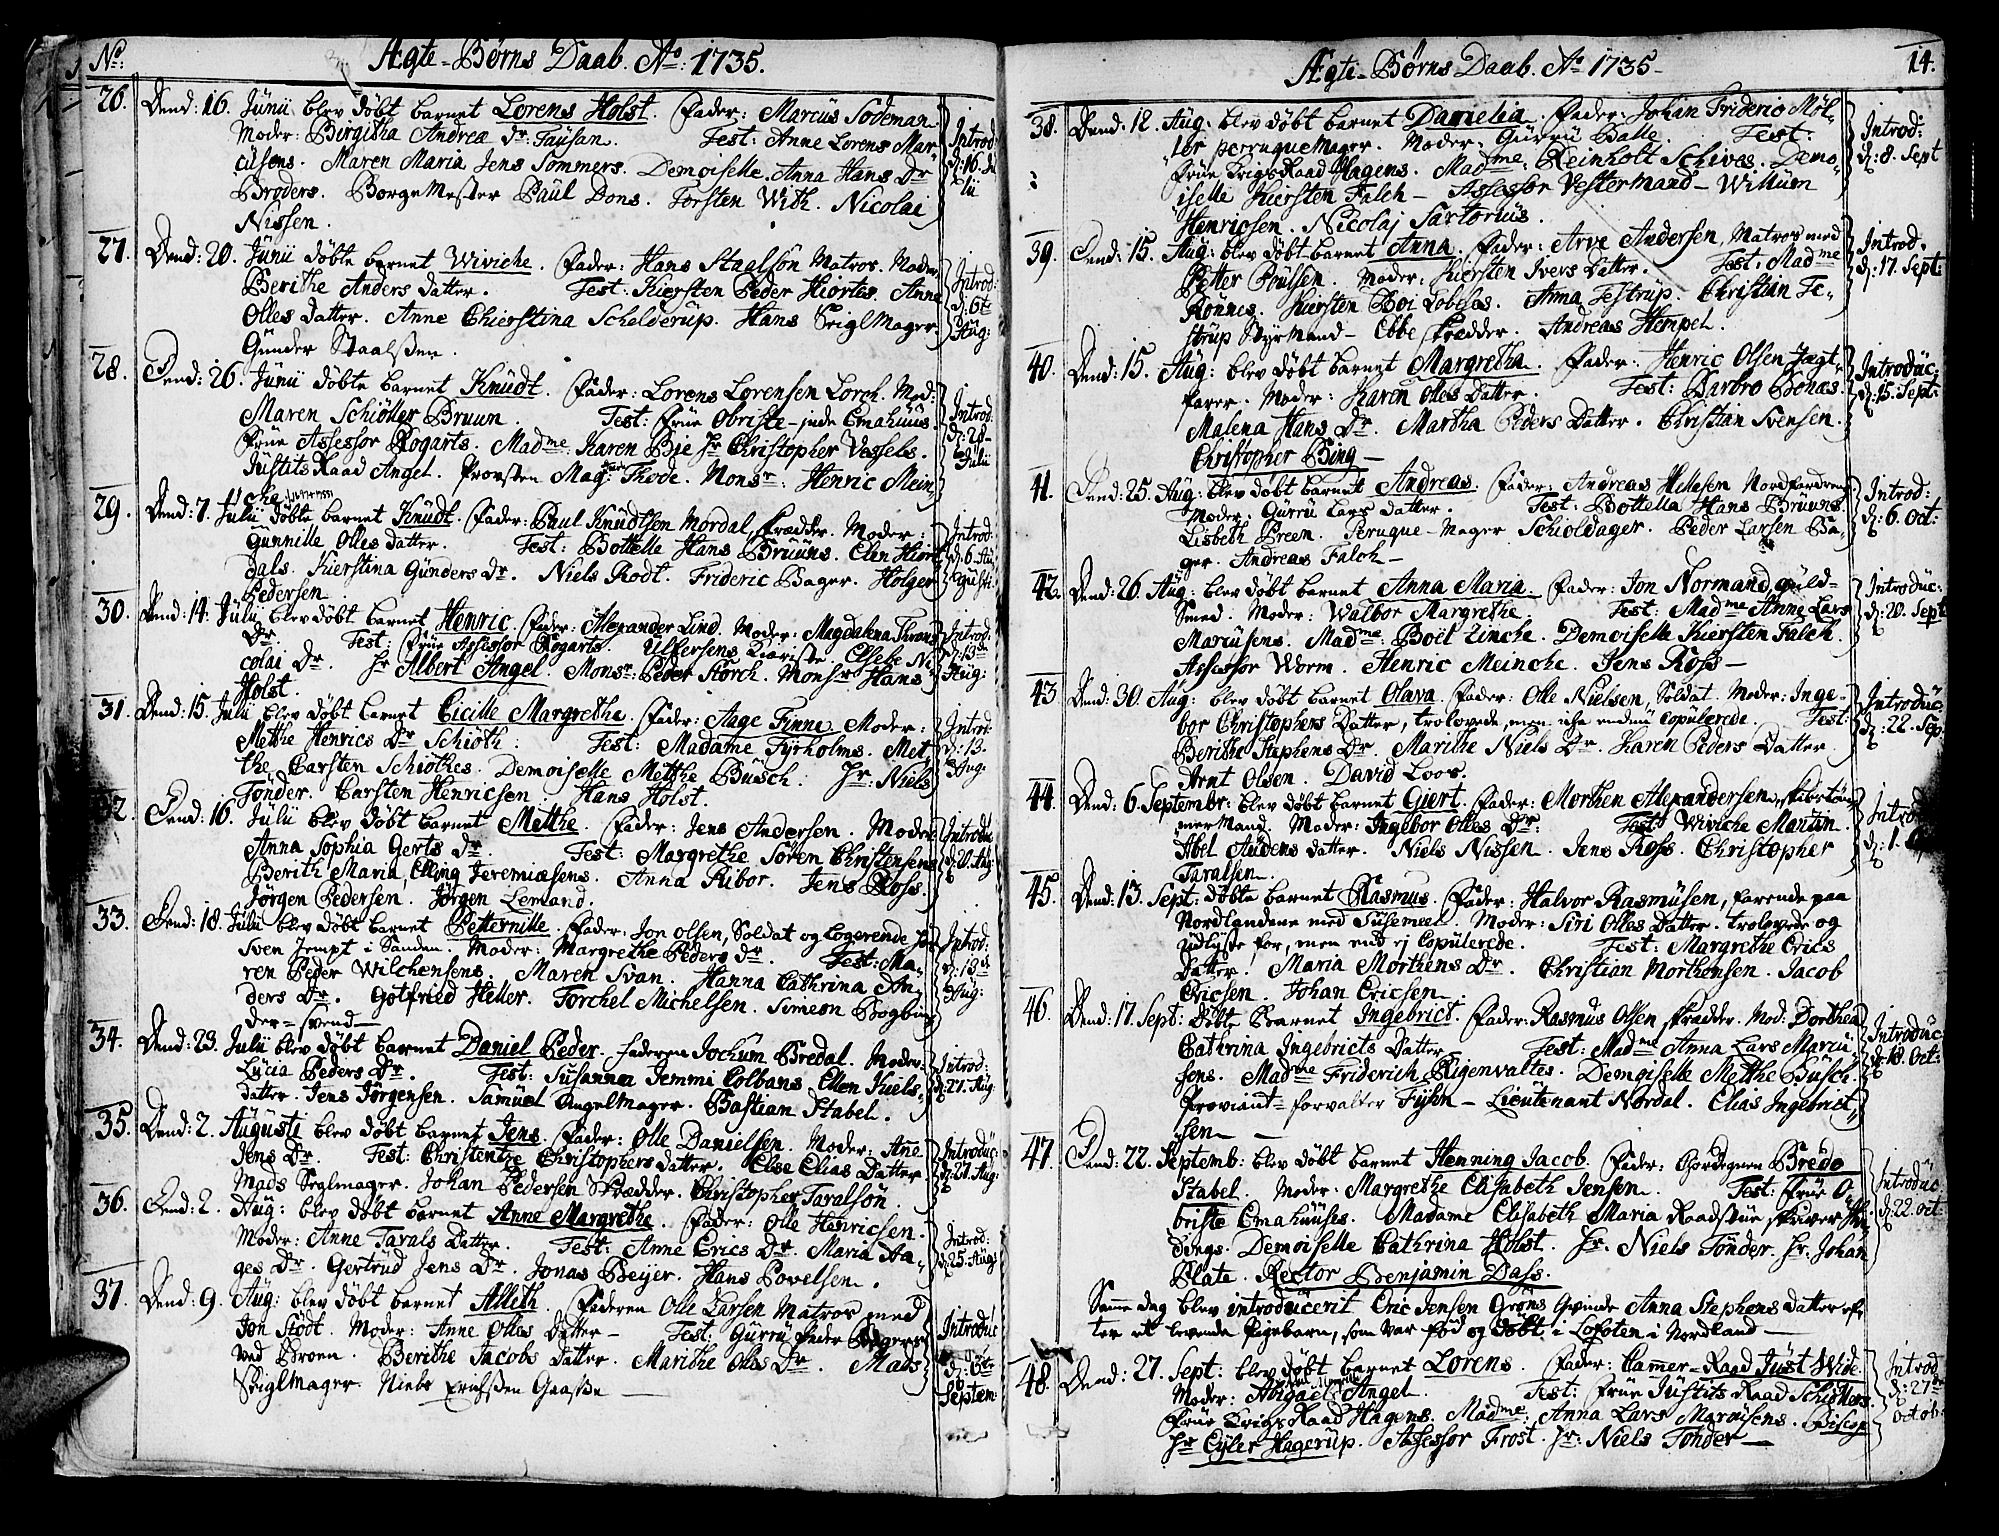 No: Ægte-Børns Daab. Ao: 1735.
26. Dend: 16. Junii blev døbt barnet Lorens Holst. Fader: Marcus Sodeman
Moder: Birgitha Andrea Dr. Fausan. Test: Anne Lorens Mar-
cusens. Maren Maria Jens Sommers. Demoiselle Anna Hans Dr
Broders. BorgeMester Paul Dons. Torsten With. Nicolai
Nissen.
Introd: d: 16. Ju
lii
27. Dend: 20. Junii døbte barnet Wiviche. Fader: Hans Staalsøn Matros. Moder
Berithe Anders Datter. Test: Kiersten Peder Hiortes. Anne
Olles Datter. Anne Chierstina Schelderup. Hans Seiglmager
Gunder Staalssen.
Introd:
d: 6te
Aug:
28. Dend: 26. Junii døbte barnet Knudt. Fader: Lorens Lorensen Lorch. Mod:
Maren Schiøller Bruun. Test: Frue Obriste-inde Emahuus.
Frue Assessor Rogarts. Madme Karen Bie Hr Christopher Vessels.
Justits Raad Angel. Provsten Mag: Thode. Monsr: Henric Mein-
cke
Introd:
d: 28
Julii
29. Dend: 7. Julii døbte barnet Knudt. Fader: Paul Knudtsen Mordal, skrædder. Moder:
Gunnille Olles Datter. Test: Bottelle Hans Bruuns. Elen Hiort-
dals. Kierstina Gunders Dr. Niels Rodt. Frideric Bager. Holger
Pedersen
Introd:
d: 6. Au
gusti
30. Dend: 14. Julii blev døbt barnet Henric. Fader: Alexander Lind. Moder: Magdalena
Dr. Test: Frue Assessor Rogarts. Elsebe Ni-
colai Dr. Hr Albert Angel. Monsr: Peder Storch. Monsr Hans
Holst.
Introd:
d: 13
Aug:
31. Dend: 15. Julii blev døbt barnet Cicille Margrethe. Fader: Aage Finne Moder:
Methe Henrics Dr Schiøth. Test: Madame Tyrholms. Met-
the Carsten Schiøthes. Demoiselle Metthe Busch. Hr: Niels
Tønder. Carsten Henricsen Hans Holst.
Introd:
d: 13.
Aug:
32. Dend: 16. Julii blev døbt barnet Metthe. Fader: Jens Andersen. Moder
Anna Sophia Gerts Dr. Test: Margrethe Søren Christensens
Berith Maria Elling Jeremiæsens. Anna Ribor. Jens Ross.
Jørgen Pedersen. Jørgen Lemand.
Introdu
d: 20. Aug:
33. Dend: 18. Julii blev døbt barnet Petternille. Fader: Jon Olsen, Soldat og Logerende hos
Sven Jempt i Sanden. Moder: Margrethe Peders Dr. Test: Ma-
ren Peder Wilchensens. Maren Svan. Hanna Cathrina An-
ders Dr. Gotfried Heller. Torchel Michelsen. Simeon Bogbin-
der-svend
Introd:
d: 18
Aug:
34. Dend: 23. Julii blev døbt barnet Daniel Peder. Faderen Jochum Bredal. Moder:
Lucia Peders Dr. Test: Susanna Jemmi Colbans. Ellen Kiels-
datter. Jens Jørgensen. Samuel Angelmager. Bastian Stabel.
Introd:
d: 21. Aug:
35. Dend: 2. Augusti blev døbt barnet Jens. Fader: Olle Danielsen. Moder: Ane
Jens Dr. Test: Christentze Christophers Datter. Else Elias Datter
Mads Seglmager. Johan Pedersen Skrædder. Christopher Taralson.
Introduc
d: 21. Aug:
36. Dend: 2. Aug: blev døbt barnet Anne Margrethe. Fader: Olle Henricsen.
Moder: Anne Tarals Datter. Test: Anne Erics Dr. Maria Aa-
ges Dr. Gertrud Jens Dr. Jonas Beyer. Hans Povelsen.
Introd:
d: 25. Aug:
37. Dend: 9. Aug: blev døbt barnet Alleth. Faderen Olle Larsen Matros med
Jon Stødt. Moder: Anne Olles Datter. Test: Gurru Peder
ved Broen. Berithe Jacobs Datter. Marithe Olles Dr. Mads
Seiglmager. Niels
Introduc
d: 6te
Septem:
Ægte-Børns Daab. Ao 1735.
14.
38. Dend: 12. Aug: blev døbt barnet Damelia. Fader: Johan Frideric Møl-
lør perruqueMager. Moder: Gurru Balle. Test:
Frue KrigsRaad Hagens. Madme: Reinholt Schives. Demo-
iselle Kiersten Falch. Assessor Vestermand. Willum
Henricsen. Nicolaj Sartorius.
Introd:
d: 8. Sept
39. Dend: 15. Aug: blev døbt barnet Anna. Fader: Arve Andersen, Matros med
Petter Poulsen. Moder: Kiersten Ivers Datter. Test: Madme
Rønnes. Kiersten Boi Lobesas. Anna Festrup. Christian Fe-
strup Styrmand. Ebbe skrædder. Andreas Hempel.
Introd.
d: 17. Sept:
40. Dend: 15. Aug: blev døbt barnet Margretha. Fader: Henric Olsen Jægt-
farer. Moder: Karen Olles Datter. Test: Barbro Bonas.
Malena Hans Dr. Martha Peders Datter. Christian Svensen.
Christopher Bing
Introduc:
d: 15. Sept:
41. Dend: 25. Aug: blev døbt barnet Andreas. Fader: Andreas Hellesen Nordfardren
Moder: Gurru Lars Datter. Test: Bottella Hans Bruuns
Lisbeth Breen. Peruque-Mager Schioldager. Peder Larsen Ba-
ger. Andreas Falch
Introd:
d: 6. Oct:
42. Dend: 26. Aug: blev døbt barnet Anna Maria. Fader: Jon Normand guld-
smed. Moder: Walbor Margrethe Test: Madme Anne Lars
Marcusens. Madme: Boel Lincke. Demoiselle Kiersten Falch.
Assessor Worm. Henric Meincke. Jens Ross
Introduc:
d: 20. Sept
43 Dend: 30 Aug: blev døbt barnet Olava. Fader: Olle Nielsen, Soldat. Moder: Inge-
bor Christophers Datter, trolovede, men icke endnu Copulerede. Test:
Berithe Stephens Dr. Marithe Niels Dr. Karen Peders Datter.
Arnt Olsen. David Loos.
Introduc
d: 22. Sep
44. Dend: 6. Septembr: blev døbt barnet Giert. Fader: Morthen Alexandersen, skibstøm-
mermand. Moder: Ingebor Olles Dr: Test: Wiviche Martin.
Abel Audens Datter. Niels Nissen. Jens Ross. Christopher
Taralsen
Introd
d: 1.
45. Dend: 13. Sept: døbte barnet Rasmus. Fader: Halvor Rasmusen, farende paa
Nordlandene med Susemeel. Moder: Siri Olles Datter. trolovede og
udlyste for, men end ej Copulerede. Test: Margrethe Erics
Datter. Maria Morthens Dr. Christian Morthensen. Jacob
Ericsen. Johan Ericsen
46. Dend: 17. Sept: Døbte Barnet Ingebrict. Fader: Rasmus Olsen skrædder. Mod: Dorthea
Cathrina Ingebricts Datter Test: Madme Anna Lars Marcu-
sens. Madme Friderich Rigenvaltes. Demoiselle Metthe Busch.
Proviant-forvalter Fuhn. Lieutenant Nordal. Elias Ingebrict-
sen
Introduc
d: 18. Oct:
47. Dend: 22. Septemb: blev døbt barnet Henning Jacob. Fader: Chordegnen Bredo
Stabel. Moder: Margrethe Elisabeth Jensen. Test: Frue O-
briste Emahuuses. Madame Elisabeth Maria Raadstue skriver
dings. Demoiselle Cathrina Holst. Hr. Niels Tønder. Hr. Johan
Plate. Rector Benjamin Dass.
Introduc
d: 22. Oct:
Samme dag blev introducerit Eric Jensen Grøns Qvinde Anna Stephens Datter ef-
ter et levende Pigebarn, som var fød og døbt i Lofoten i Nordland
48. Dend: 27. Sept: blev døbt barnet Lorens. Fader: Cammer-Raad Just Wide
Moder: Abigael Angel. Test: Frue Justits Raad Schiøllers
Frue Krigs Raad Hagens. Madme: Anna Lars Marcusens. Biscop
Hr Eyler Hagerup. Assessor Frost. Hr: Niels Tønder
Introd
d: 27
octob: